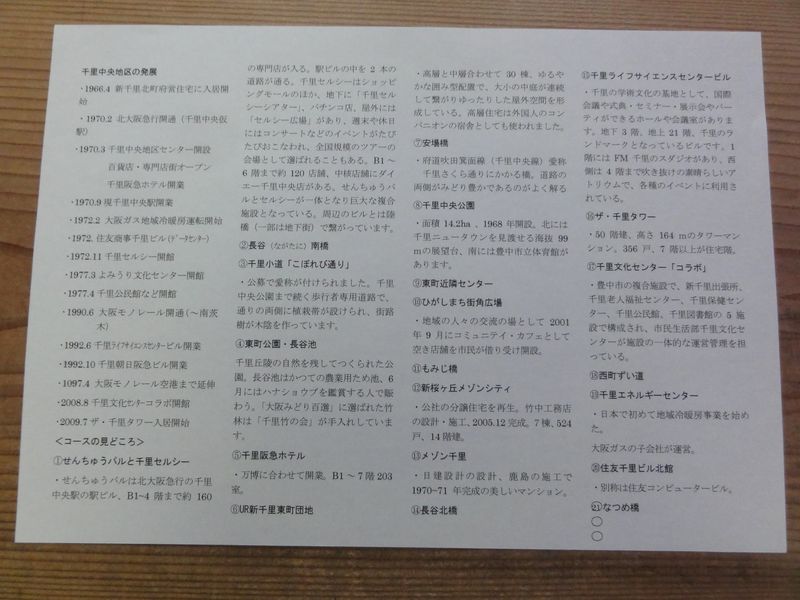 千里中央地区の発展
・1966.4 新千里北町府営住宅に入居開
始
・1970.2 北大阪急行開通（千里中央仮
駅）
・1970.3 千里中央地区センター開設
百貨店・専門店街オープン
千里阪急ホテル開業
・1970.9 現千里中央駅開業
・1972.2 大阪ガス地域冷暖房運転開始
・1972. 住友商事千里ビル（データセンター）
・1972.11 千里セルシー開館
・1977.3 よみうり文化センター開館
・1977.4 千里公民館など開館
・1990.6 大阪モノレール開通（～南茨
木）
・1992.6 千里ライフサイエンスセンタービル開業
・1992.10 千里朝日阪急ビル開業
・1097.4 大阪モノレール空港まで延伸
・2008.8 千里文化センターコラボ開館
・2009.7 ザ・千里タワー入居開始
＜コースの見どころ＞
①せんちゅうパルと千里セルシー
・せんちゅうパルは北大阪急行の千里
中央駅の駅ビル、B1~4 階まで約 160
の専門店が入る。駅ビルの中を 2 本の
道路が通る。千里セルシーはショッピ
ングモールのほか、地下に「千里セル
シーシアター」、パチンコ店、屋外には
「セルシー広場」があり、週末や休日
にはコンサートなどのイベントがたび
たびおこなわれ、全国規模のツアーの
会場として選ばれることもある。B1～
6 階まで約 120 店舗、中核店舗にダイ
エー千里中央店がある。せんちゅうパ
ルとセルシーが一体となり巨大な複合
施設となっている。周辺のビルとは陸
橋（一部は地下街）で繋がっています。
②長谷（ながたに）南橋
③千里小道「こぼれび通り」
・公募で愛称が付けられました。千里
中央公園まで続く歩行者専用道路で、
通りの両側に植栽帯が設けられ、街路
樹が木陰を作っています。
④東町公園・長谷池
千里丘陵の自然を残してつくられた公
園。長谷池はかつての農業用ため池、6
月にはハナショウブを鑑賞する人で賑
わう。「大阪みどり百選」に選ばれた竹
林は「千里竹の会」が手入れしていま
す。
⑤千里阪急ホテル
・万博に合わせて開業。B1～7 階 203
室。
⑥UR新千里東町団地
・高層と中層合わせて 30 棟、ゆるや
かな囲み型配置で、大小の中庭が連続
して繋がりゆったりした屋外空間を形
成している。高層住宅は外国人のコン
パニオンの宿舎としても使われました。
⑦安場橋
・府道吹田箕面線（千里中央線）愛称
千里さくら通りにかかる橋。道路の
両側がみどり豊かであるのがよく解る
⑧千里中央公園
・面積 14.2ha 、1968 年開設。北には
千里ニュータウンを見渡せる海抜 99
ｍの展望台、南には豊中市立体育館が
あります。
⑨東町近隣センター
⑩ひがしまち街角広場
・地域の人々の交流の場として 2001
年 9 月にコミュニテイ・カフェとして
空き店舗を市民が借り受け開設。
⑪もみじ橋
⑫新桜ヶ丘メゾンシティ
・公社の分譲住宅を再生。竹中工務店
の設計・施工、2005.12 完成。7 棟、524
戸、14 階建。
⑬メゾン千里
・日建設計の設計、鹿島の施工で
1970~71 年完成の美しいマンション。
⑭長谷北橋
⑮千里ライフサイエンスセンタービル
・千里の学術文化の基地として、国際
会議や式典・セミナー・展示会やパー
ティができるホールや会議室がありま
す。地下 3 階、地上 21 階、千里のラ
ンドマークとなっているビルです。1
階には FM 千里のスタジオがあり、西
側は 4 階まで吹き抜けの素晴らしいア
トリウムで、各種のイベントに利用さ
れている。
⑯ザ・千里タワー
・50 階建、高さ 164 ｍのタワーマン
ション。356 戸、7 階以上が住宅階。
⑰千里文化センター「コラボ」
・豊中市の複合施設で、新千里出張所、
千里老人福祉センター、千里保健セン
ター、千里公民館、千里図書館の 5 施
設で構成され、市民生活部千里文化セ
ンターが施設の一体的な運営管理を担
っている。
⑱西町ずい道
⑲千里エネルギーセンター
・日本で初めて地域冷暖房事業を始め
た。
大阪ガスの子会社が運営。
⑳住友千里ビル北館
・別称は住友コンピュータービル。
㉑なつめ橋
○
○